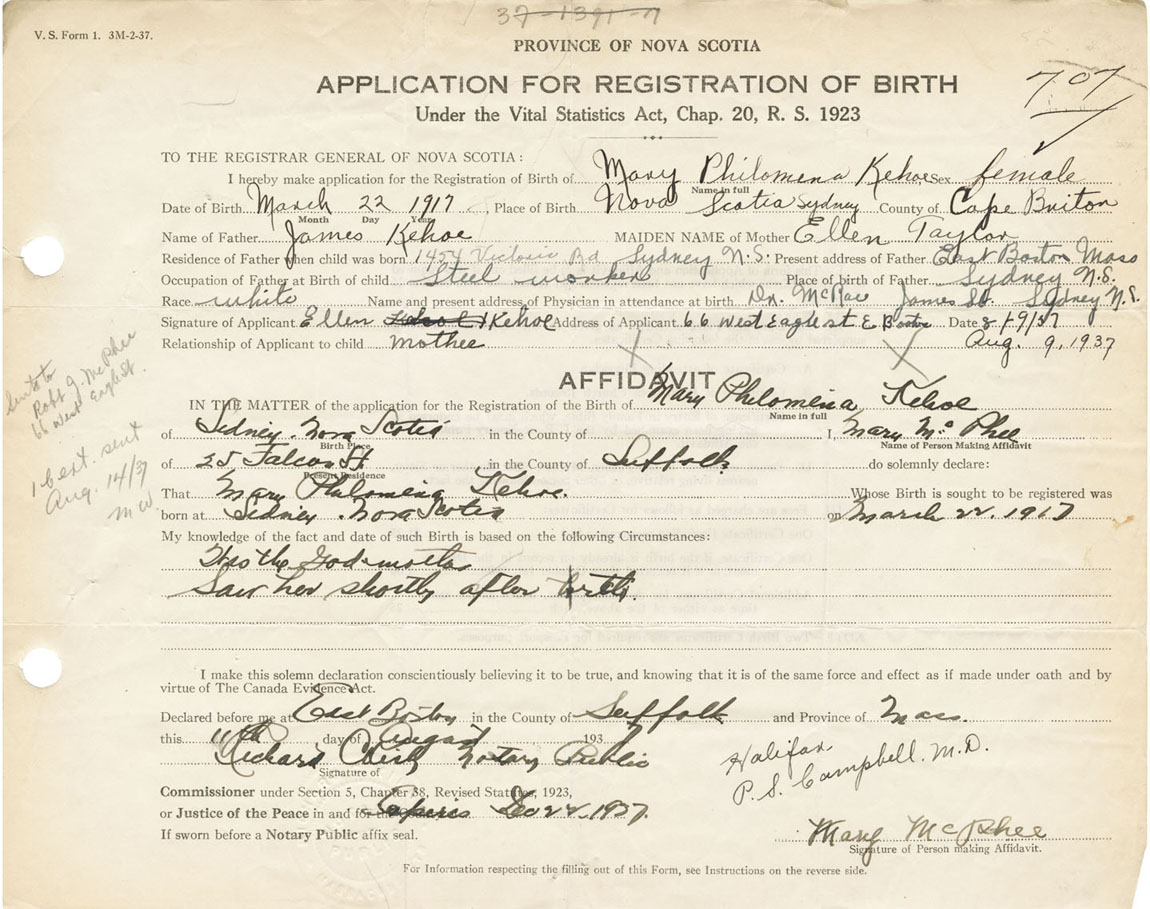 37-1391-7
V. S. Form 1. 3M-2-37.
PROVINCE OF NOVA SCOTIA
APPLICATION FOR REGISTRATION OF BIRTH
707
Under the Vital Statistics Act, Chap. 20, R. S. 1923
TO THE REGISTRAR GENERAL OF NOVA SCOTIA:
I hereby make application for the Registration of Birth of Mary Philomena Kehoe Sex female
Name in full
Date of Birth March 22 1917, Place of Birth Nova Scotia Sydney County of Cape Briton
Month Day Year
Name of Father James Kehoe MAIDEN NAME of Mother Ellen Taylor
Residence of Father when child was born 1454 Victoria Rd Sydney N.S. Present address of Father East Boston Mass
Occupation of Father at Birth of child Steel worker Place of birth of Father Sydney N.S.
Race white Name and present address of Physician in attendance at birth Dr. McRae James St. Sydney N.S.
Signature of Applicant Ellen Kehoe Address of Applicant 66 West Eagle st E Boston Date 8/9/37
Relationship of Applicant to child mother Aug. 9, 1937
Sent to
Robt J. McPhee
66 West Eagle St.
1 cert. sent
Aug. 14/37
M W.
AFFIDAVIT
IN THE MATTER of the application for the Registration of the Birth of Mary Philomena Kehoe
Name in full
of Sidney Nova Scotia in the County of I, Mary McPhee
Birth Place Name of Person Making Affidavit
of 25 Falcon St. in the County of Suffolk do solemnly declare:
Present Residence
That Mary Philomena Kehoe. Whose Birth is sought to be registered was
born at Sidney Nova Scotia on March 22. 1917
My knowledge of the fact and date of such Birth is based on the following Circumstances:
Was the God-mother
Saw her shortly after birth.
I make this solemn declaration conscientiously believing it to be true, and knowing that it is of the same force and effect as if made under oath and by
virtue of The Canada Evidence Act.
Declared before me at East Boston in the County of Suffolk and Province of Mass.
this 11th day of August 193
Richard Notary Public
Signature of
Halifax
P. S. Campbell. M.D.
Commissioner under Section 5, Chapter 38, Revised Statutes, 1923,
or Justice of the Peace in and for the Expires Dec 22, 1937.
If sworn before a Notary Public affix seal.
Mary McPhee
Signature of Person making Affidavit.
For Information respecting the filling out of this Form, see Instructions on the reverse side.